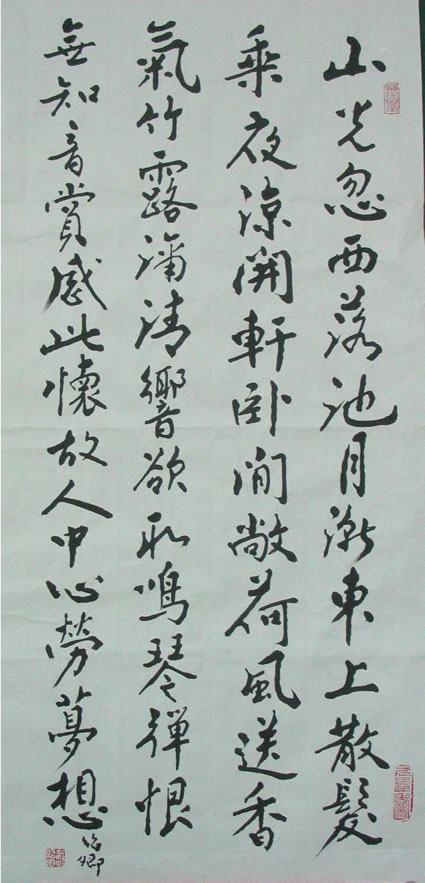 山光忽西落池月漸東上散髮
乘夜涼開軒卧閒敞荷風送香
氣竹露滴清響欲取鳴琴彈恨
無知音賞感此懷故人中心勞夢想
卿